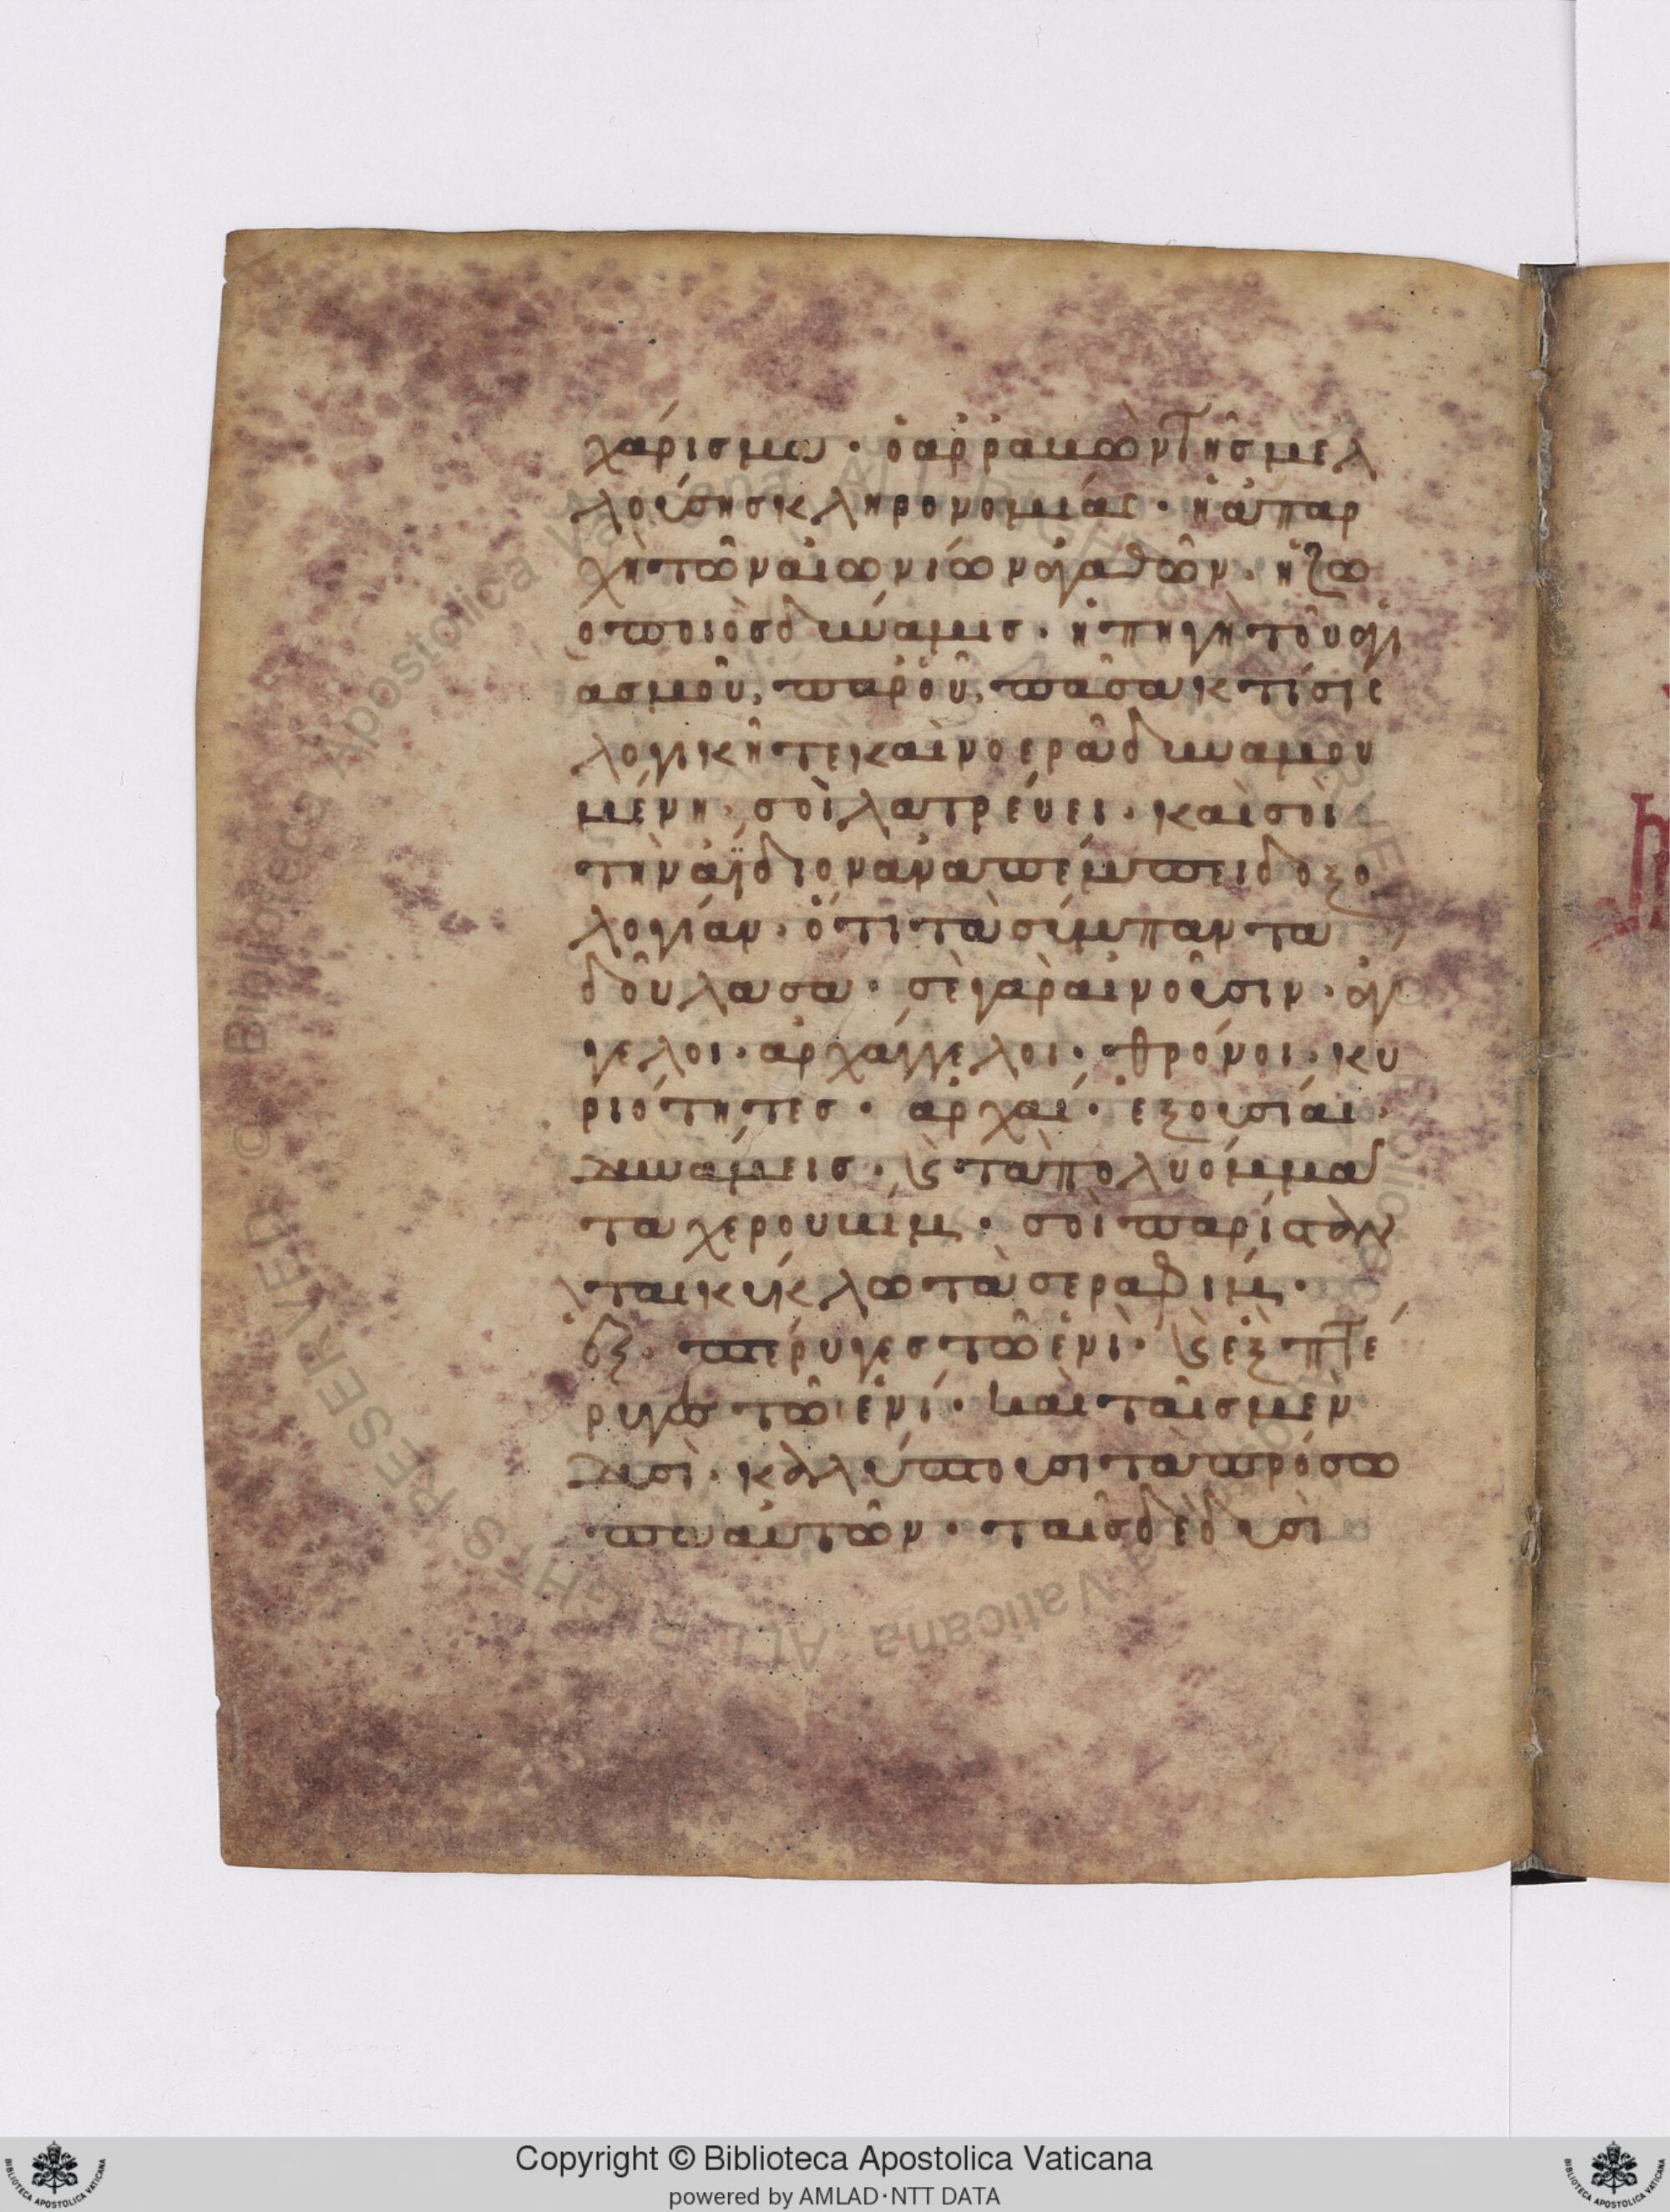 χάρισμα · ὁ ἀρραβὼν τῆς μελ
λούσης κληρονομίας · ἡ ἀπαρ
χὴ τῶν αἰωνίων ἀγαθῶν · ἡ ζω
οποιὸς δύναμις · ἡ πηγὴ τοῦ ἁγι
ασμοῦ, παρ' οὗ, πᾶσα κτίσις
λογικῆ τε καὶ νοερᾶ δυναμου
μένη · σοὶ λατρεύει · καὶ σοὶ
τὴν ἀΐδιον ἀναπέμπει δοξο
λογίαν · ὅτι τὰ σύμπαντα
δοῦλα σα · σὲ γὰρ αἰνοῦσιν · ἄγ
γελοι · ἀρχάγγελοι · θρόνοι · κυ
ριότητες · ἀρχαί · ἐξουσίαι ·
δυνάμεις · ϗ τὰ πολυόμμα
τα χερουβίμ · σοὶ παρίσταν
ται κύκλω τὰ σεραφίμ ·
ἓξ · πτέρυγες τῶ ἑνὶ · ϗ ἓξ πτέ
ρυγες τῶ ἑνί · καὶ ταῖς μὲν
δυσὶ · καλύπτουσι τὰ πρόσω
πα αὐτῶν · ταῖς δὲ δυσὶ
© Biblioteca Apostolica Vaticana ALL RIGHTS RESERVED
Copyright © Biblioteca Apostolica Vaticana
powered by AMLAD·NTT DATA
BIBLIOTECA APOSTOLICA VATICANA
BIBLIOTECA APOSTOLICA VATICANA